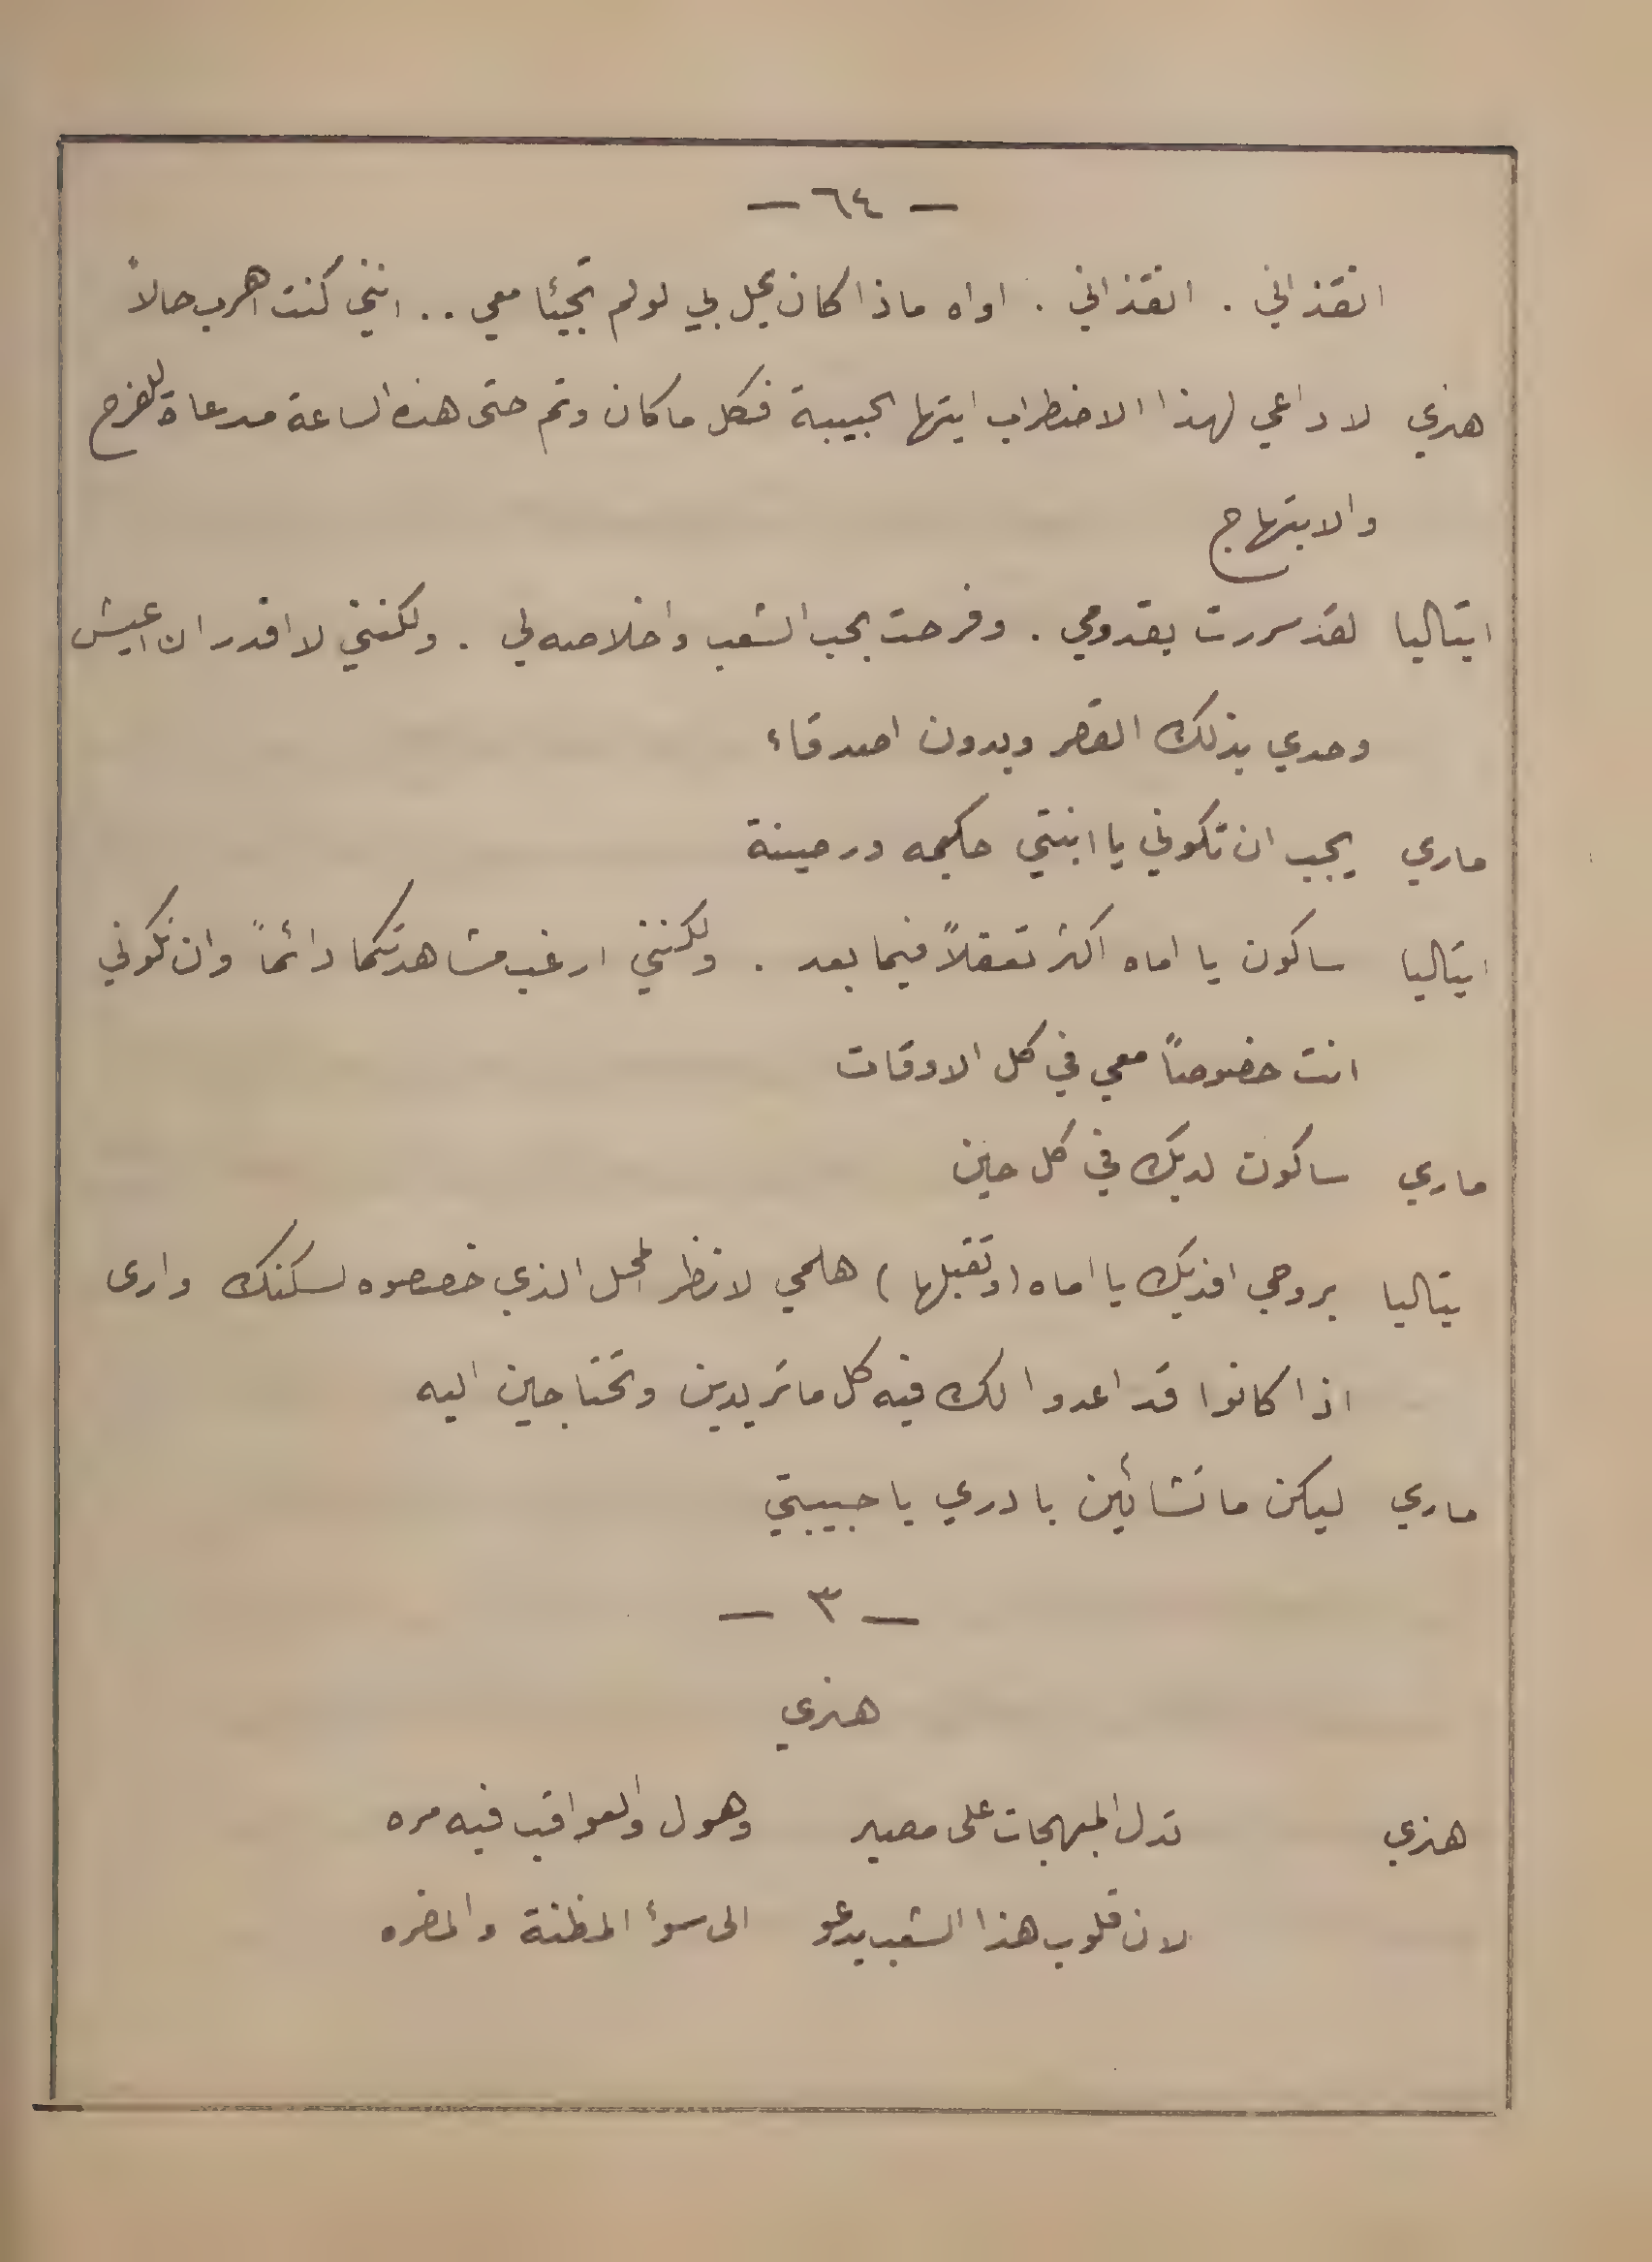 — ٦٤ —
انقذاني . انقذاني . اواه ماذا كان يحل بي لو لم تجيئا معي .. انني كنت اهرب حالاً
هنري لا داعي لهذا الاضطراب ايتها الحبيبة فكل ما كان وتم حتى هذه الساعة مدعاة للفرح
والابتهاج
ايتاليا لقد سررت بقدومي . وفرحت بحب الشعب واخلاصه لي . ولكنني لا اقدر ان اعيش
وحدي بذلك القصر وبدون اصدقاء
ماري يجب ان تكوني يا ابنتي حكيمه ورصينة
ايتاليا ساكون يا اماه اكثر تعقلاً فيما بعد . ولكنني ارغب مشاهدتكما دائماً وان تكوني
انت خصوصاً معي في كل الاوقات
ماري ساكون لديك في كل حين
يتاليا بروحي افديك يا اماه (وتقبلها) هلمي لانظر المحل الذي خصصوه لسكنك وارى
اذا كانوا قد اعدوا لك فيه كل ما تريدين وتحتاجين اليه
ماري ليكن ما تشائين بادري يا حبيبتي
— ٣ —
هنري
هنري تدل المبهجات على مصير وهول والعواقب فيه مره
لان قلوب هذا الشعب يدعو الى سوأ المظنة والمضره